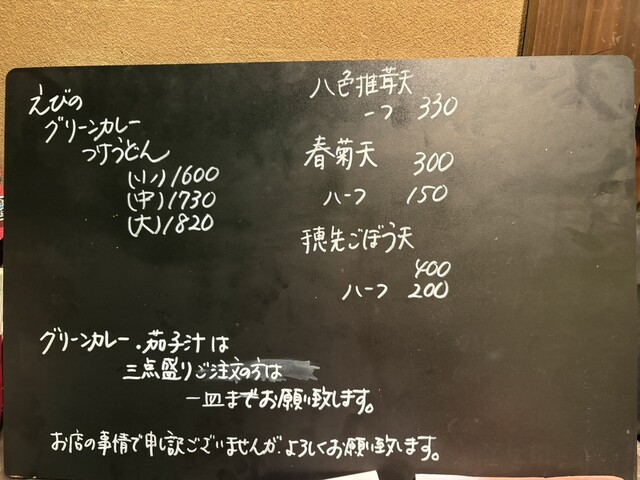 えびの
グリーンカレー
つけうどん
(小)1600
(中)1730
(大)1820
八色椎茸天
一つ 330
春菊天 300
ハーフ 150
穂先ごぼう天
400
ハーフ 200
グリーンカレー・茄子汁は
三点盛りご注文の方は
一皿までお願い致します。
お店の事情で申し訳ございませんが、よろしくお願い致します。